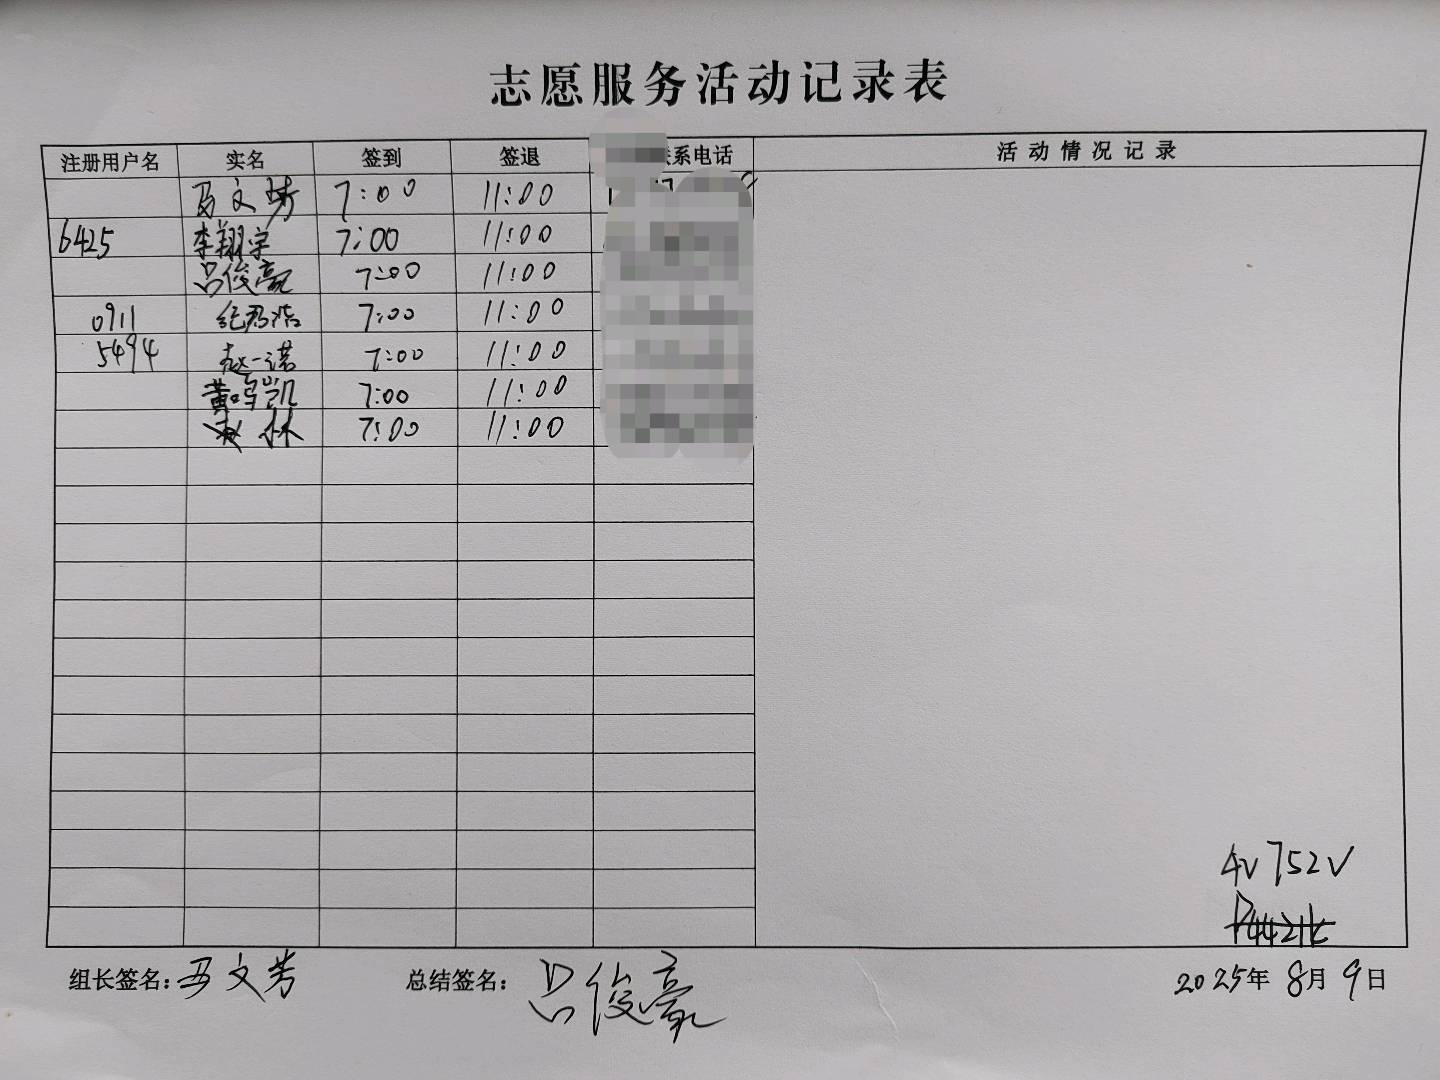 志愿服务活动记录表
注册用户名 实名 签到 签退 联系电话 活动情况记录
马文芳 7:00 11:00
6425 李翔宇 7:00 11:00
吕俊豪 7:00 11:00
0911 纪君浩 7:00 11:00
5494 赵一诺 7:00 11:00
黄鸣凯 7:00 11:00
林 7:00 11:00
4V752V
组长签名：马文芳 总结签名：吕俊豪 2025年8月9日